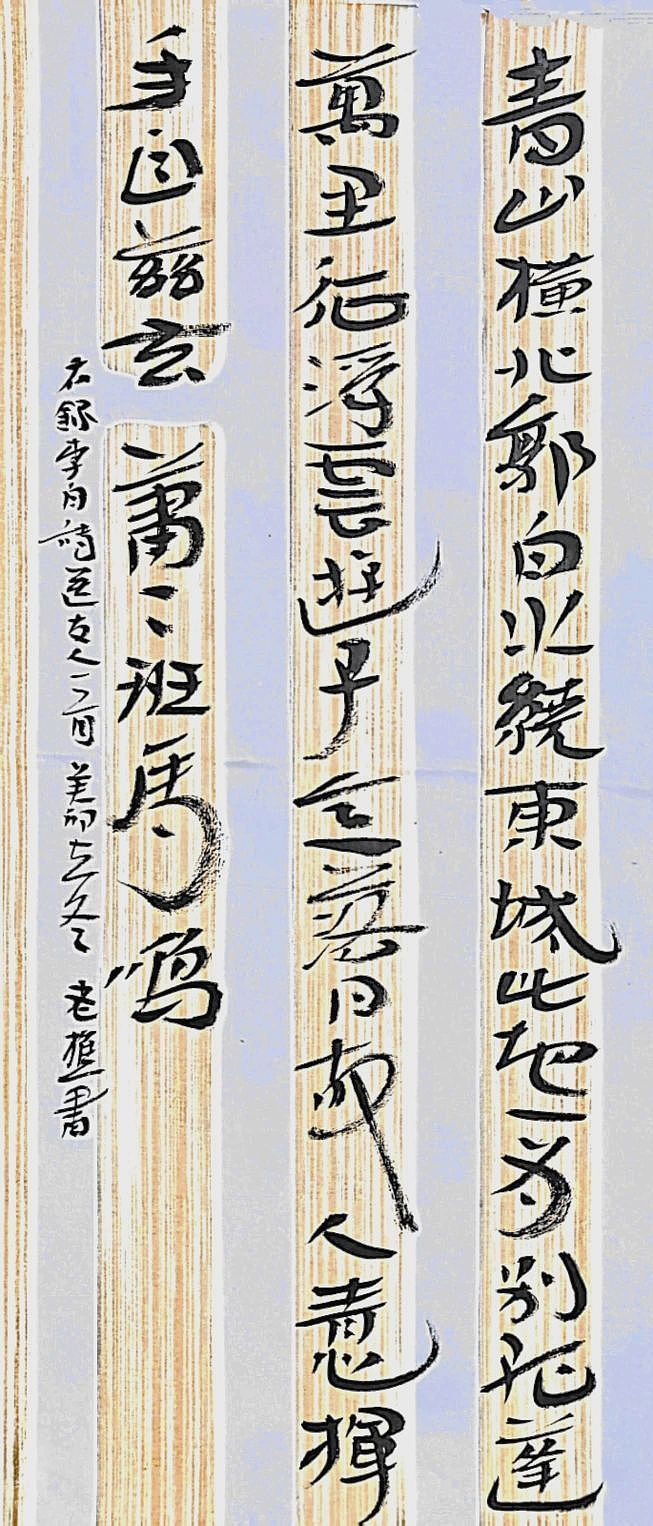 青山橫北郭白水繞東城此地一為別孤蓬
萬里征浮雲遊子意落日故人情揮
手自茲去蕭〻班馬鳴
右錄李白詩送友人一首 癸卯立冬 老樵書